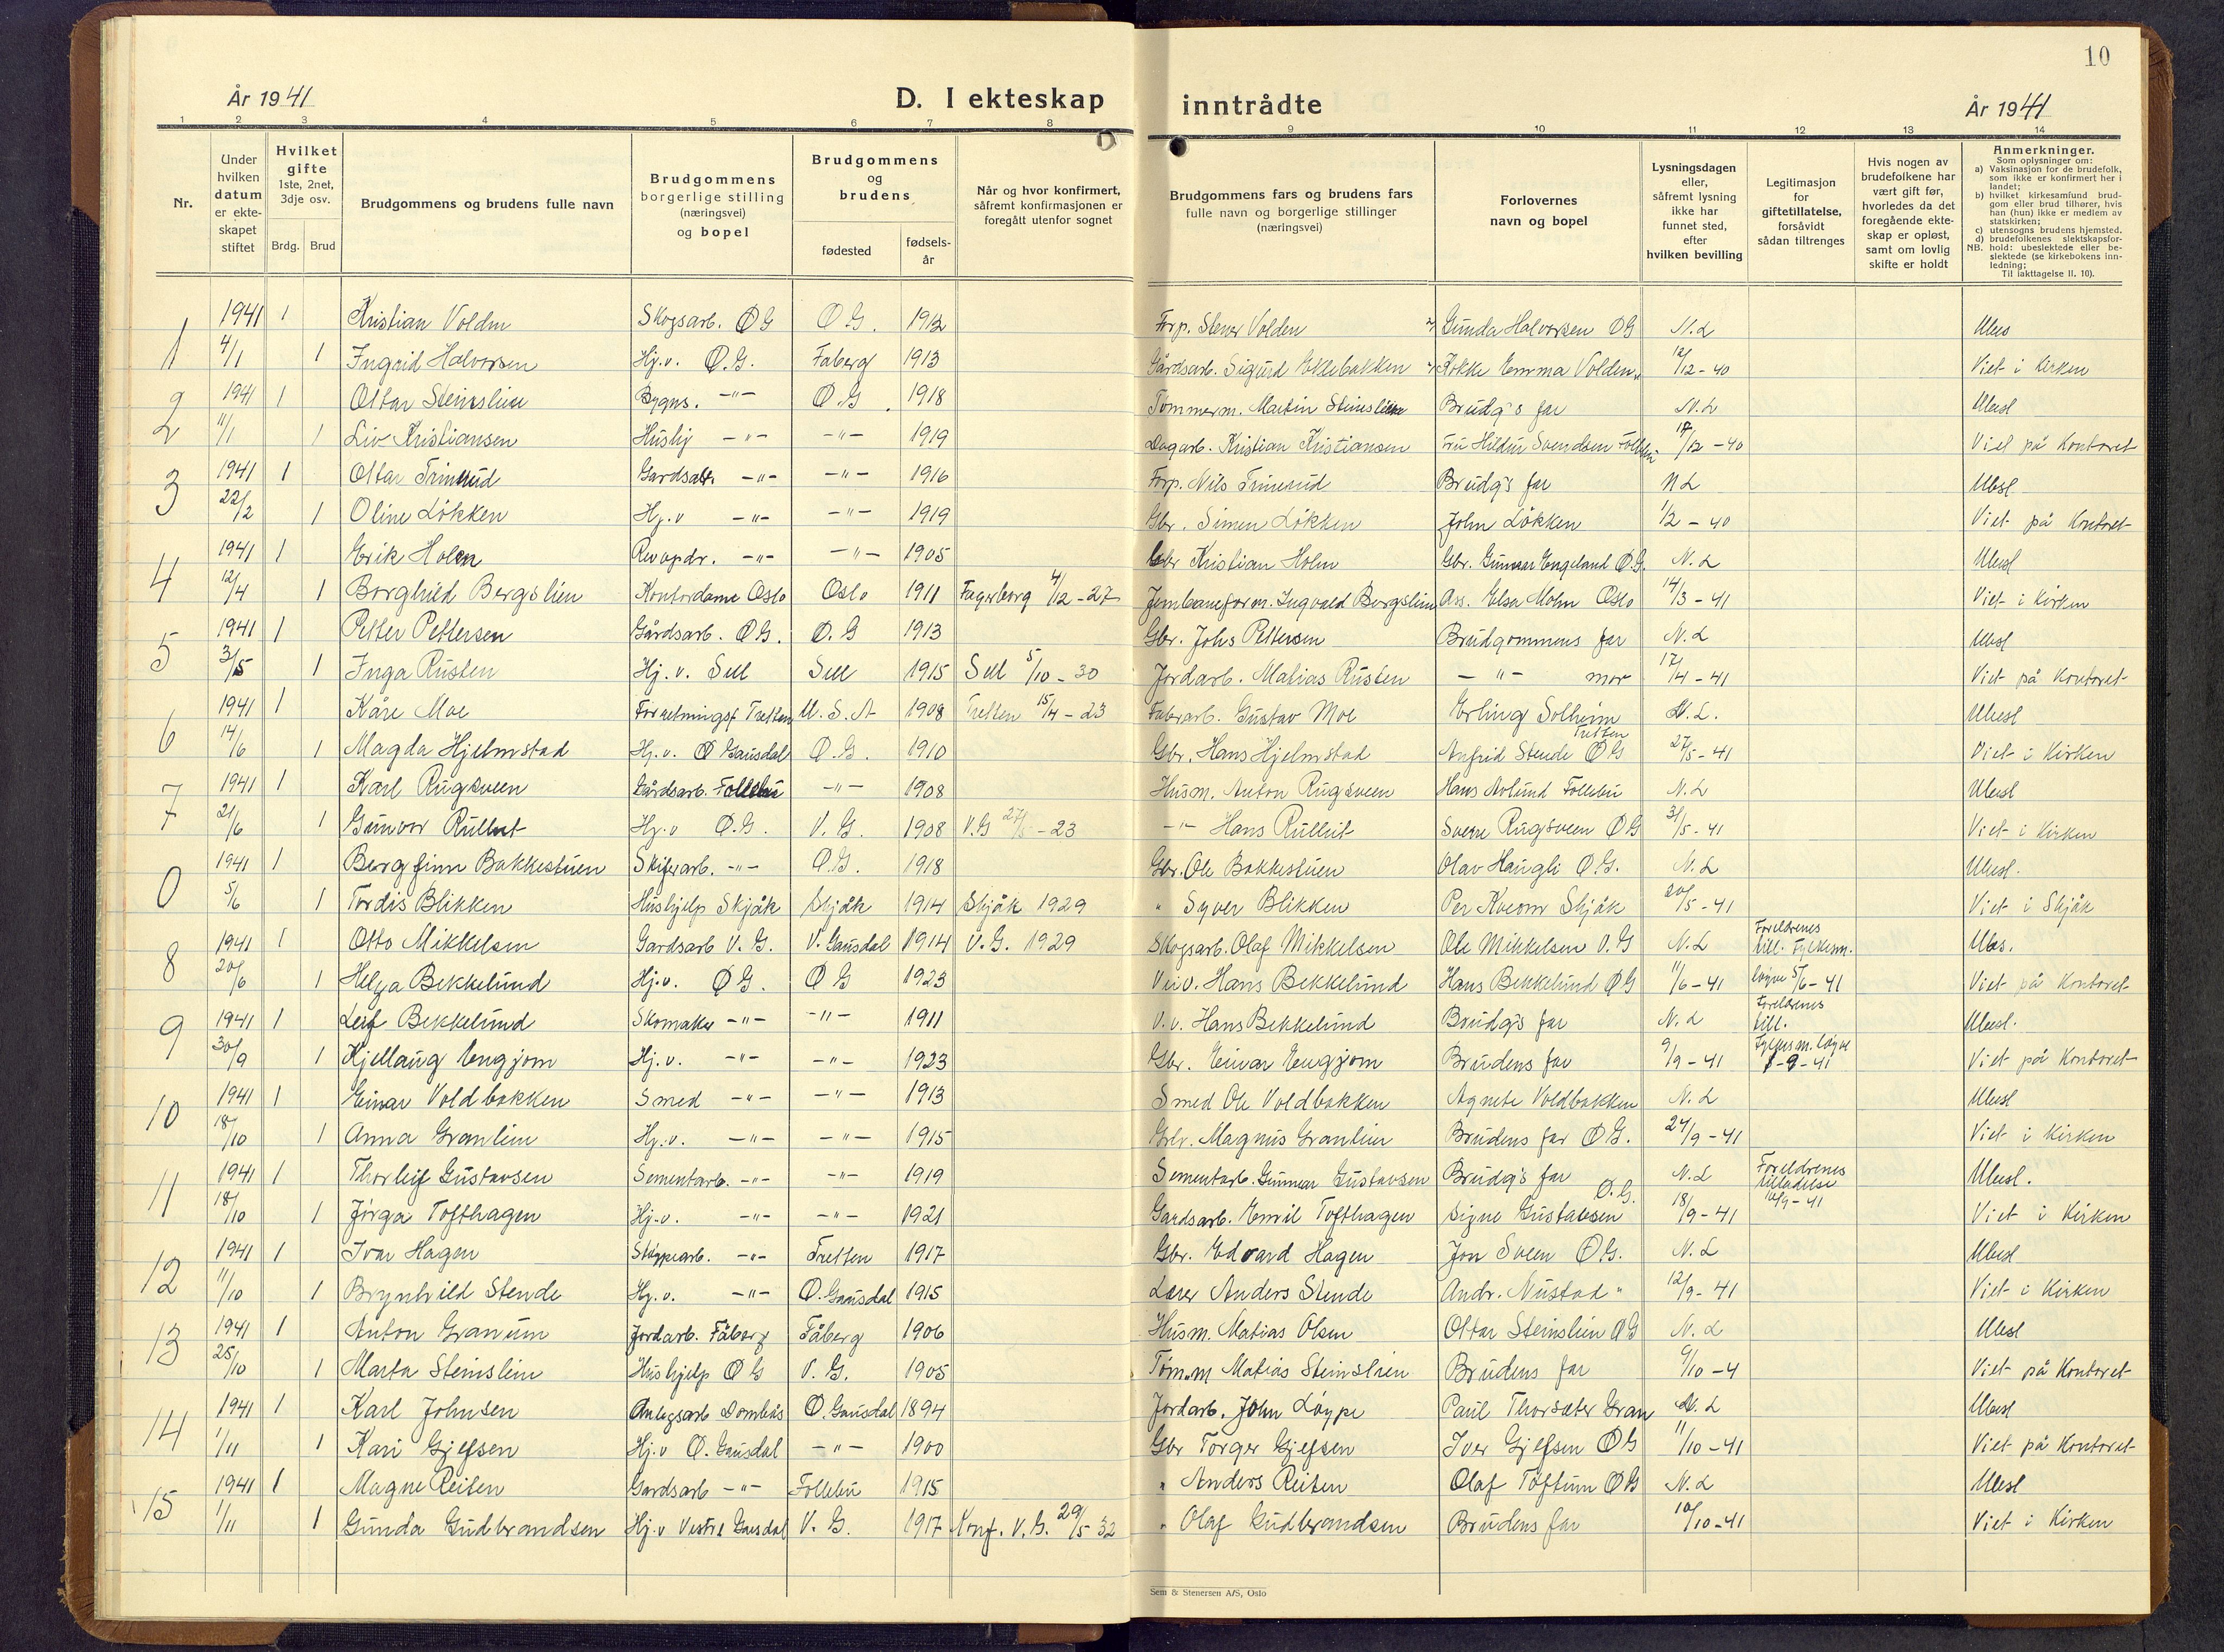 10
År 1941
D. I ekteskap inntrådte
År 1941
1 2 3 4 5 6 7 8 9 10 11 12 13 14
Nr.
Under hvilken datum er ekteskapet stiftet
Hvilket gifte 1ste, 2net, 3dje osv.
Brdg. Brud
Brudgommens og brudens fulle navn
Brudgommens borgerlige stilling (næringsvei) og bopel
Brudgommens og brudens
fødested
fødsels-år
Når og hvor konfirmert, såfremt konfirmasjonen er foregått utenfor sognet
Brudgommens fars og brudens fars fulle navn og borgerlige stillinger (næringsvei)
Forlovernes navn og bopel
Lysningsdagen eller, såfremt lysning ikke har funnet sted, efter hvilken bevilling
Legitimasjon for giftetillatelse, forsåvidt sådan tiltrenges
Hvis nogen av brudefolkene har vært gift før, hvorledes da det foregående ekteskap er opløst, samt om lovlig skifte er holdt
Anmerkninger.
Som oplysninger om:
a) Vaksinasjon for de brudefolk, som ikke er konfirmert her i landet;
b) hvilket kirkesamfund brudgom eller brud tilhører, hvis han (hun) ikke er medlem av statskirken;
c) utensogns brudens hjemsted.
d) brudefolkenes slektskapsforhold: ubeslektede eller beslektede (se kirkebokens innledning;
NB. Til iakttagelse II. 10).
1 1941 1 Kristian Volden Skogsarb. Ø G Ø.G. 1912 Forp. Stener Volden Gunda Halvorsen Ø G N.L Ubes
4/1 1 Ingrid Halvorsen Hj.v. Ø.G. Faberg 1913 Gårdsarb. Sigurd Eklebakken Kokke Emma Volden 12/12-40 Viet i Kirken
2 1941 1 Ottar Steinslien Bygns. -"- Ø.G. 1918 Tømmerm. Martin Steinslien Brudg's far N.L Ubesl
11/1 1 Liv Kristiansen Huslig -"- -"- 1919 Dagarb. Kristian Kristiansen Fru Hildur Svendsen Follebu /12-40 Viet på Kontoret
3 1941 1 Ottar Trinrud Gardsarb. -"- -"- 1916 Forp. Nils Trinrud Brudg's far N L Ubsl
22/2 1 Oline Løkken Hj.v -"- -"- 1919 Gbr. Simen Løkken John Løkken 1/2-40 Viet på Kontoret
4 1941 1 Erik Holen Revopdr. -"- -"- 1905 Gbr Kristian Holen Gbr. Gunnar Engeland Ø.G. N.L Ubesl
12/4 1 Borghild Bergslien Kontordame Oslo Oslo 1911 Fagerborg 4/12-27 Jernbaneform. Ingvald Bergslien Ass. Elsa Mohn Oslo 14/3-41 Viet i Kirken
5 1941 1 Petter Pettersen Gårdsarb. Ø G. Ø.G 1913 Gbr. Johs Pettersen Brudgommens far N.L Ubesl
3/5 1 Inga Rusten Hj.v. Sell Sell 1915 Sell 5/10-30 Jordarb. Matias Rusten -"- mor 17/4-41 Viet på Kontoret
6 1941 1 Kåre Moe Forretningsf Tretten U.S.A 1908 Tretten 15/4-23 Fabrarb. Gustav Moe Erling Solheim Tretten N.L. Ubesl
14/6 1 Magda Hjelmstad Hj.v. Ø Gausdal Ø.G. 1910 Gbr. Hans Hjelmstad Anfrid Stende Ø G 27/5-41 Viet i Kirken
7 1941 1 Karl Rugsveen Gårdsarb. Follebu -"- 1908 Husm. Anton Rugsveen Hans Aolund Follebu N.L Ubesl
21/6 1 Gunvor Rullut Hj.v Ø.G. V.G. 1908 V.G 27/5-23 -"- Hans Rullut Sverre Rugsveen Ø G 31/5-41 Viet i Kirken
0 1941 1 Bergfinn Bakkestuen Skiferarb. -"- Ø.G. 1918 Gbr. Ole Bakkestuen Olav Haugli Ø.G. N.L Ubesl.
5/6 1 Tordis Blikken Hushjelp Skjåk Skjåk 1914 Skjåk 1929 " Syver Blikken Per Kveom Skjåk 20/5-41 Viet i Skjåk
8 1941 1 Otto Mikkelsen Gardsarb V.G. V.Gausdal 1914 V.G. 1929 Skogsarb. Olaf Mikkelsen Ole Mikkelsen V.G N.L Foreldrenes till. Fylkesm. Ubes.
20/6 1 Helga Bekkelund Hj.v. Ø G. Ø G 1923 Veiv. Hans Bekkelund Hans Bekkelund Ø G 11/6-41 løyve 5/6-41 Viet på Kontoret
9 1941 1 Leif Bekkelund Skomaker -"- -"- 1911 V.v. Hans Bekkelund Brudg's far N.L Foreldrenes till. Ubesl.
30/9 1 Kjellaug Engjom Hj.v. -"- -"- 1923 Gbr. Einar Engjom Brudens far 9/9-41 Fylkesm. løyve -9-41 Viet på Kontoret
10 1941 1 Einar Voldbakken Smed -"- -"- 1913 Smed Ole Voldbakken Agnete Voldbakken N.L Ubesl
18/10 1 Anna Granlien Hj.v. -"- -"- 1915 Gbr. Magnus Granlien Brudens far Ø G. 24/9-41 Viet i Kirken
11 1941 1 Thorleif Gustavsen Sementarb. -"- -"- 1919 Sementarb. Gunnar Gustavsen Brudg's far N.L Foreldrenes tilladelse Ubesl.
18/10 1 Jørga Tofthagen Hj.v. -"- -"- 1921 Gardsarb. Emil Tofthagen Signe Gustavsen Ø.G. 18/9-41 10/9-41 Viet i Kirken
12 1941 1 Ivar Hagen Støypearb. -"- Tretten 1917 Gbr. Edvard Hagen Jon Sveen Ø G. N.L Ubesl
11/10 1 Brynhild Stende Hj.v. -"- Ø.Gausdal 1915 Lærer Anders Stende Andr. Nustad " 12/9-41 Viet i Kirken
13 1941 1 Anton Granum Jordarb. Fåberg Fåberg 1906 Husm. Matias Olsen Ottar Steinslien Ø G N.L Ubesl
25/10 1 Marta Steinslien Hushjelp Ø G V.G. 1905 Tøm.m Matias Steinslien Brudens far 9/10-4 Viet på Kontoret
14 1941 1 Karl Johnsen Anlegsarb Dombås Ø.Gausdal 1894 Jordarb. John Løype Paul Thorsæter Gran N.L Ubesl
1/11 1 Kari Gjefsen Hj.v Ø.Gausdal -"- 1900 Gbr Torger Gjefsen Iver Gjefsen Ø G 11/10-41 Viet på Kontoret
15 1941 1 Magne Reiten Gardsarb -"- Follebu 1915 " Anders Reiten Olaf Toftum Ø G N.L Ubesl
1/11 1 Gunda Gudbrandsen Hj.v Vestre Gausdal V.G. 1917 Konf. V.G. 29/5 32 " Olaf Gudbrandsen Brudens far 10/10-41 Viet i Kirken
Sem & Stenersen A/S, Oslo